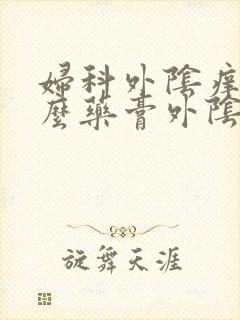 婦科外陰瘙
麼藥膏外陰
旋舞天涯